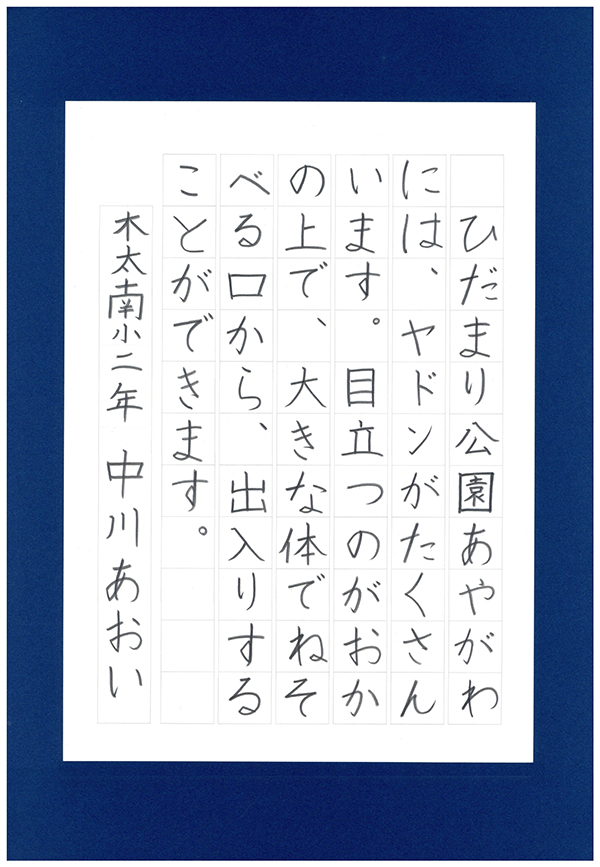 ひだまり公園あやがわ
には、ヤドンがたくさん
います。目立つのがおか
の上で、大きな体でねそ
べる口から、出入りする
ことができます。
木太南小二年 中川あおい